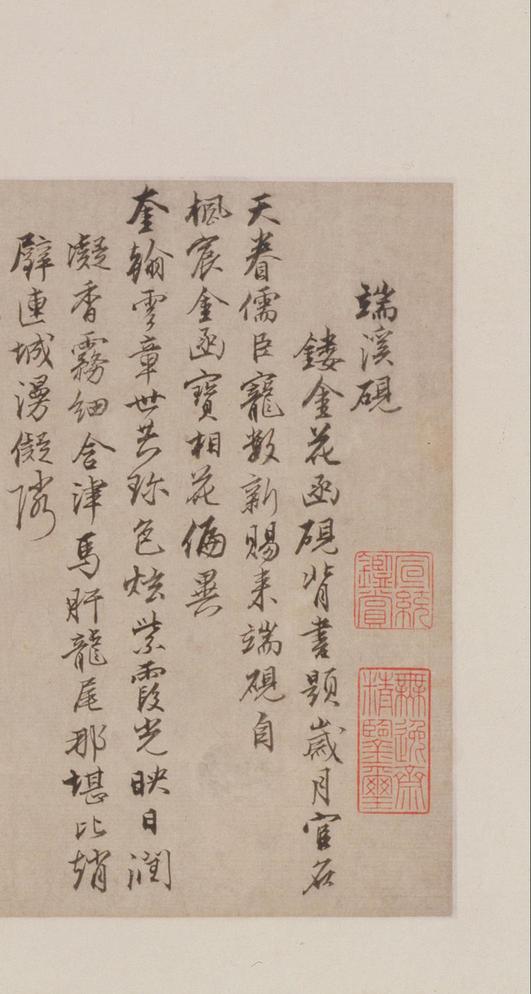 端溪硯
鏤金花函硯背書題歲月官名
天眷儒臣寵數新賜来端硯自
楓宸金函寶相花偏異
奎翰雲章世共珎色炫紫霞光映日潤
凝香霧細含津馬肝龍尾那堪比趙
璧連城漫儗隣
宣統鑑賞
無逸齋精鑒璽